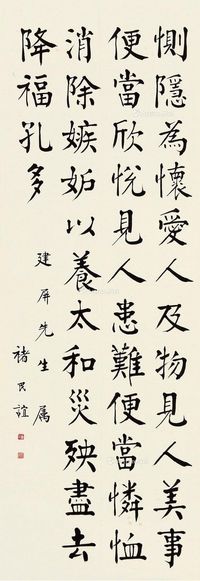 惻隱為懷愛人及物見人美事
便當欣悅見人患難便當憐恤
消除嫉妬以養太和災殃盡去
降福孔多
建屏先生属
褚民誼